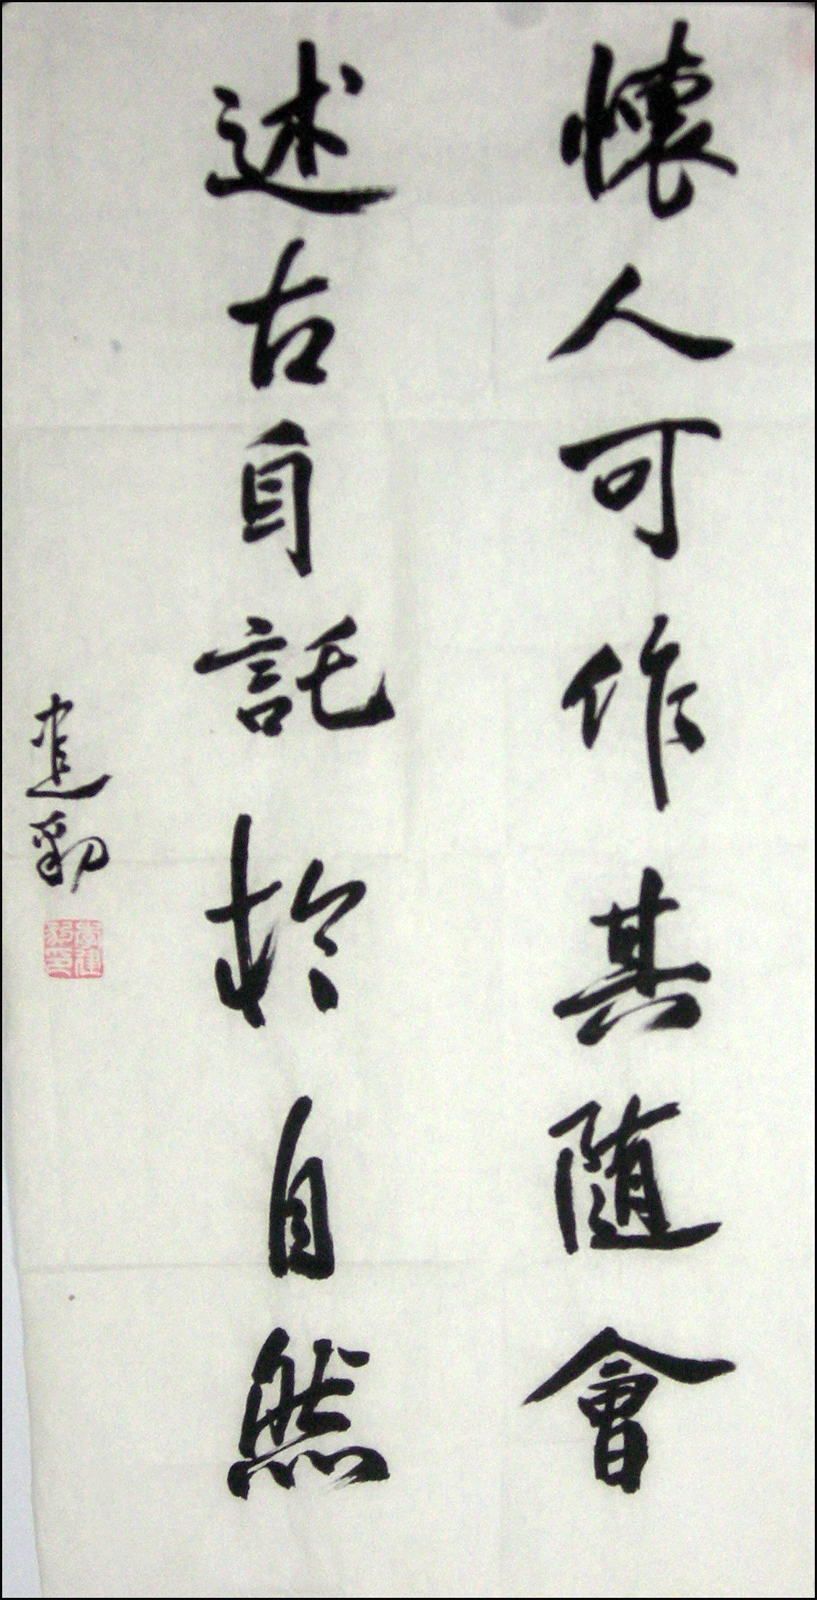 懷人可作其隨會
述古自託於自然
建勳